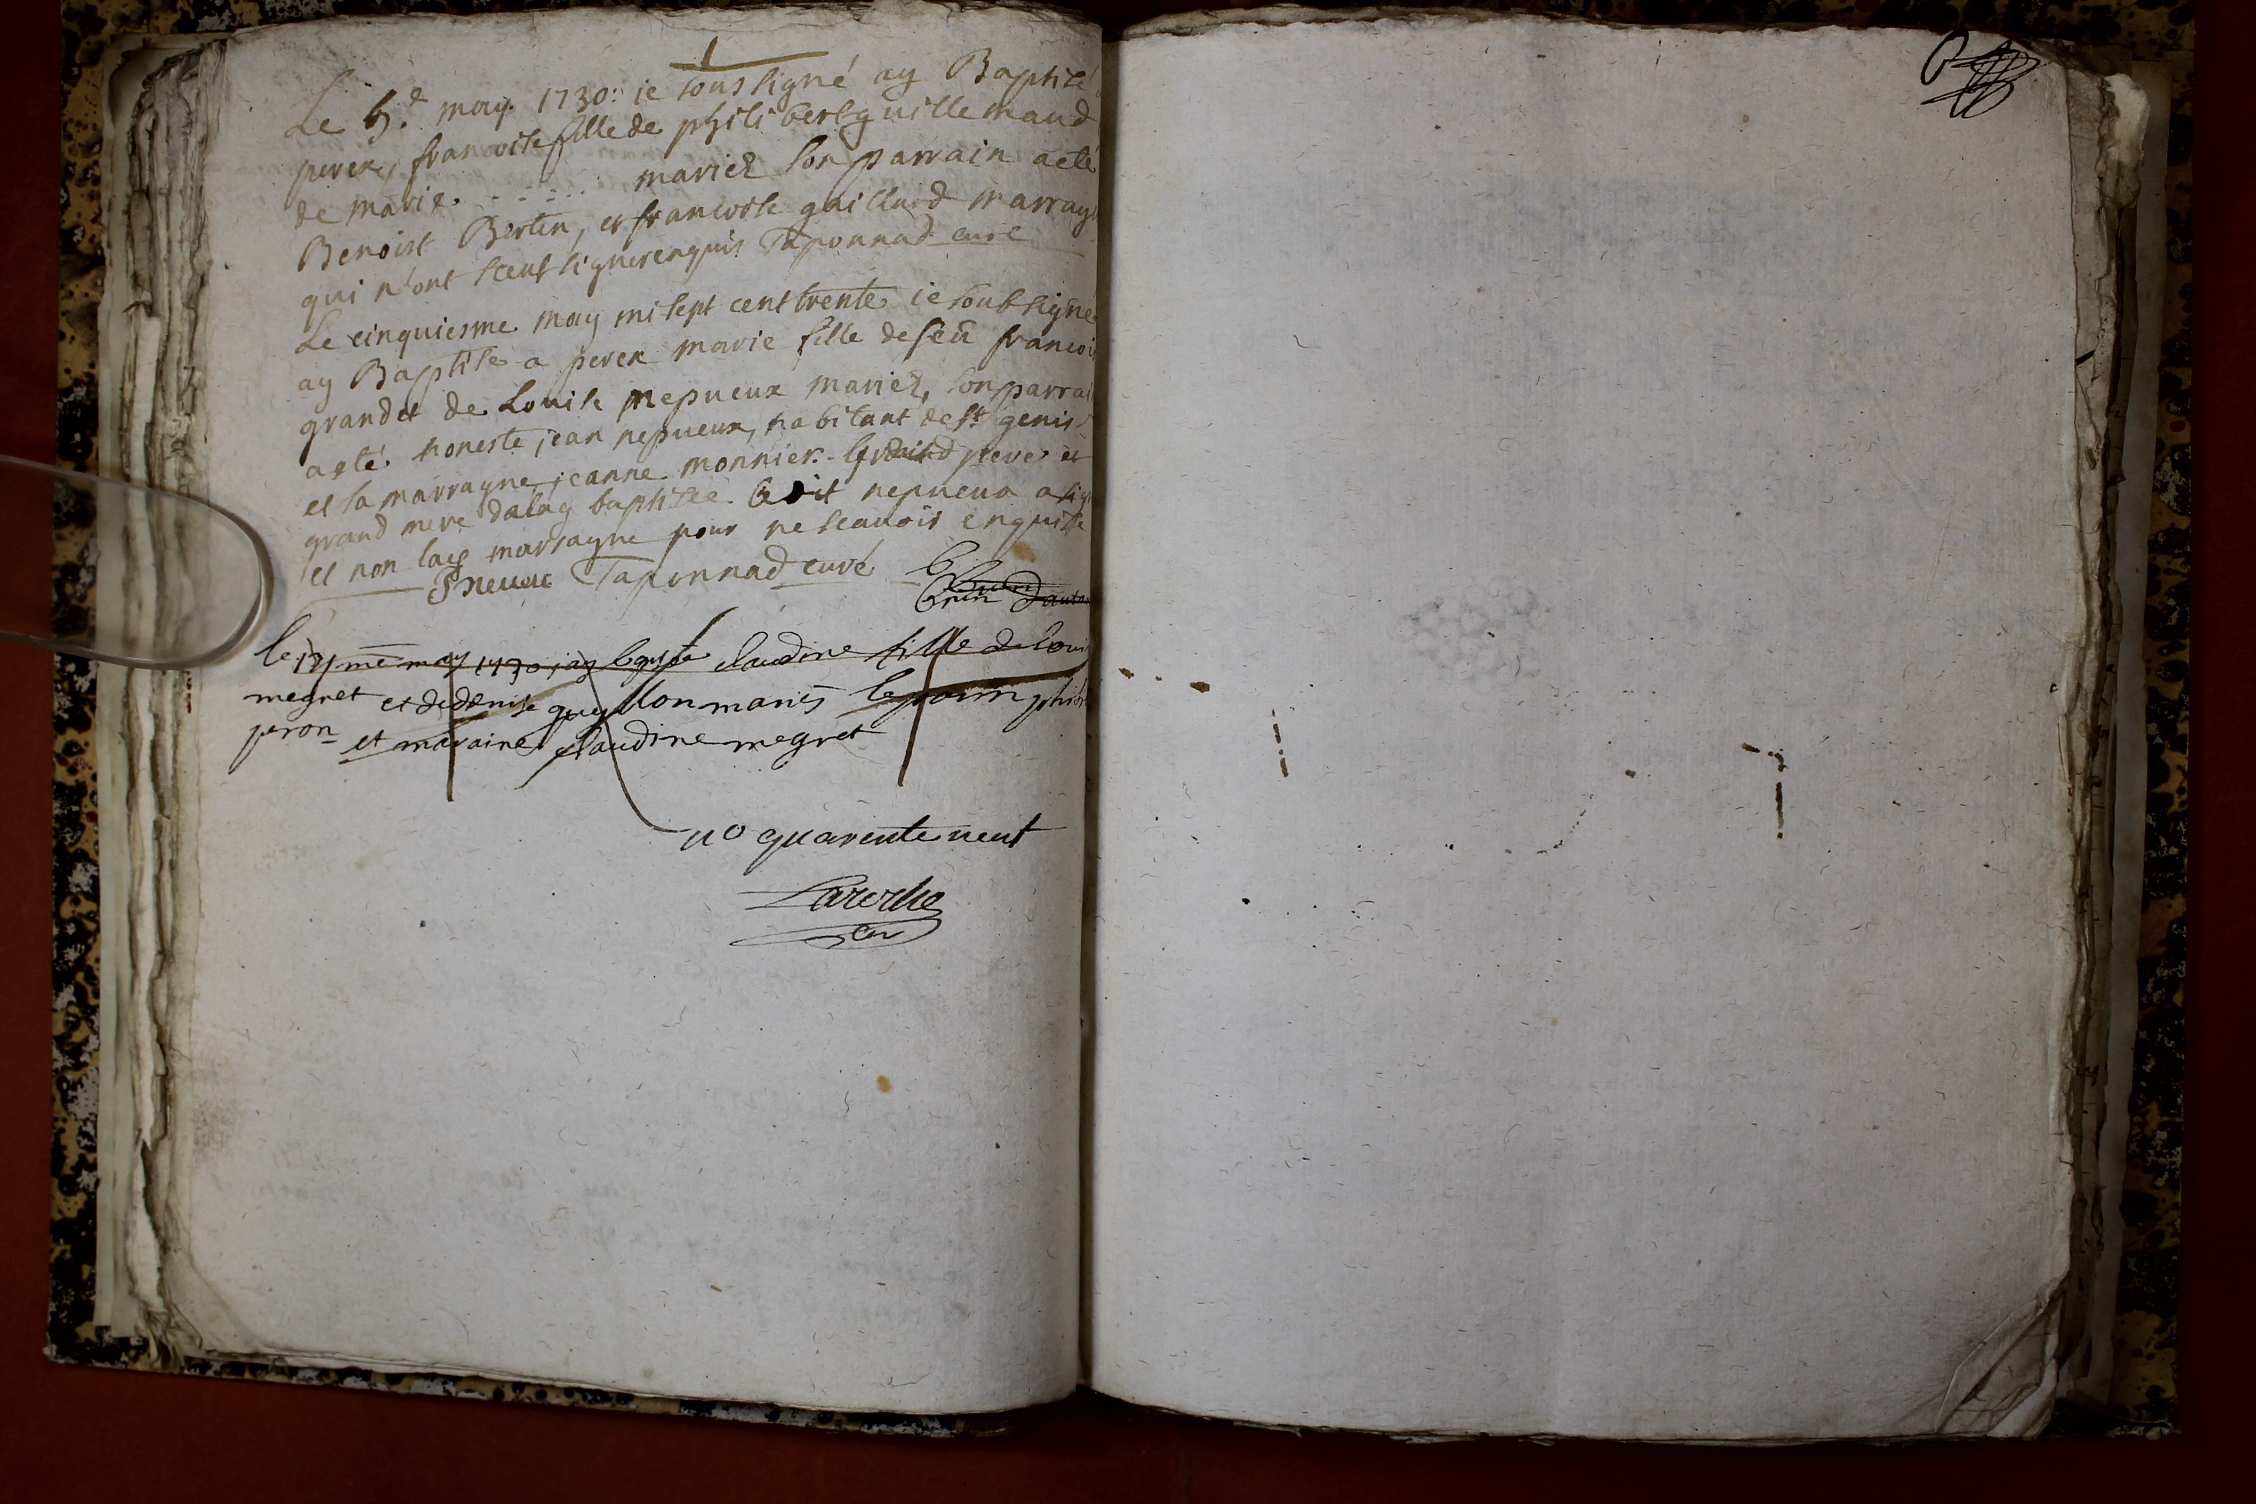 Le 5.e may 1730: ie sousigné ay Baptisé
perex, francoise fille de philibert guillemaud
de marie. . . . . . mariez son parrain a eté
Benoist Bertin, et francoise gaillard marrayn
qui n'ont sceut signer enquis Taponnad curé
Le cinquiesme may mil sept cent trente ie soubsigné
ay Baptise a perex marie fille de feu francois
grandet de Louise nepueux mariez, son parrai
a eté honeste jean nepueux, habitant de st genis
et la marrayne jeanne monnier grand pere et
grand mere de la baptisée. ledit nepueux a sig
et non lad marrayne pour ne scauoir enquise
Taponnad curé
le may 1730 jay baptise claudine fille de Loui
megret et de denise guyllon mariés le parin phili
peron et maraine claudine megret
no quarente neuf
Laroche